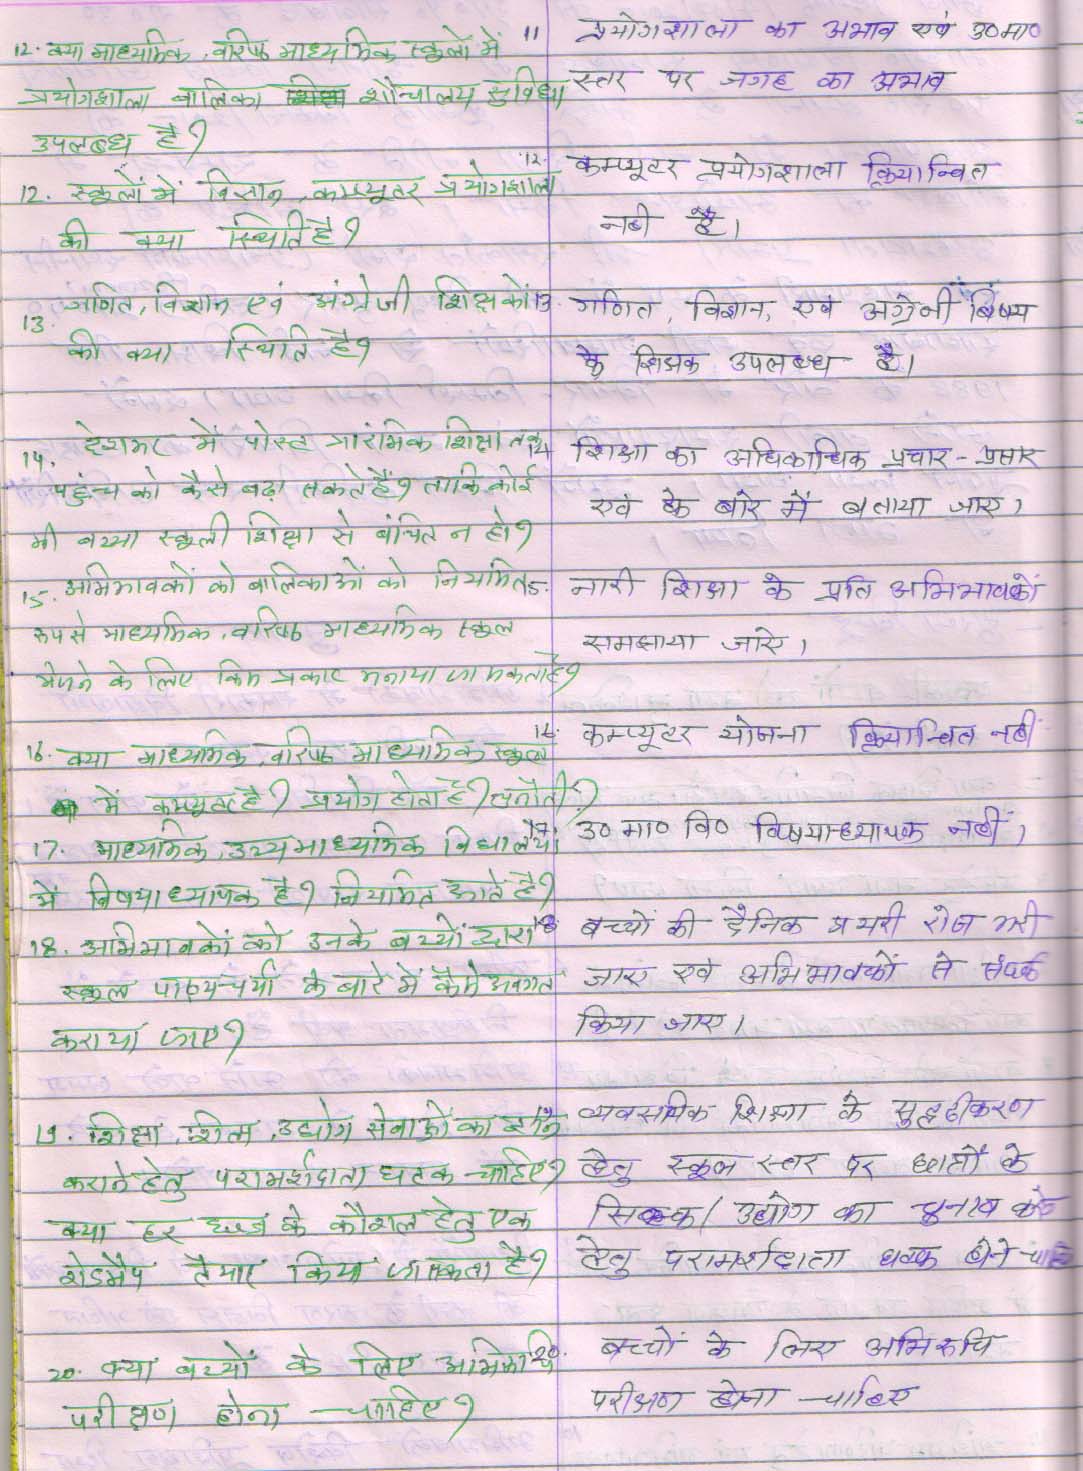 12. क्या माध्यमिक, वरिष्ठ माध्यमिक स्कूलों में
प्रयोगशाला बालिका शौचालय सुविधा
उपलब्ध है?
12. स्कूलों में विज्ञान, कम्प्यूटर प्रयोगशाला
की क्या स्थिति है?
13 गणित, विज्ञान एवं अंग्रेजी शिक्षकों
की क्या स्थिति है?
14. देशभर में पोस्ट प्रारंभिक शिक्षा तक
पहुंच को कैसे बढ़ा सकते हैं? ताकि कोई
भी बच्चा स्कूली शिक्षा से बंचित न हो?
15. अभिभावकों को बालिकाओं को नियमित
रूप से माध्यमिक, वरिष्ठ माध्यमिक स्कूल
भेजने के लिए किस प्रकार मनाया जा सकता है?
16. क्या माध्यमिक, वरिष्ठ माध्यमिक स्कूल
में कम्प्यूटर है? प्रयोग होता है? चुनौती?
17. माध्यमिक, उच्च माध्यमिक विद्यालयों
में विषयाध्यापक है? नियमित आते है?
18. अभिभावकों को उनके बच्चों द्वारा
स्कूल पाठ्यचर्या के बारे में कैसे अवगत
कराया जाए?
19. शिक्षा, शिल्प, उद्योग सेवाओं का
कराने हेतु परामर्शदाता घटक चाहिए?
क्या हर के कौशल हेतु एक
रोडमैप तैयार किया जा सकता है?
20. क्या बच्चों के लिए अभिरूचि
परीक्षण होना चाहिए?
11 प्रयोगशाला का अभाव एवं उ०मा०
स्तर पर जगह का अभाव
12. कम्प्यूटर प्रयोगशाला क्रियान्वित
नही है।
13. गणित, विज्ञान, एवं अंग्रेजी बिषय
के शिक्षक उपलब्ध है।
14 शिक्षा का अधिकाधिक प्रचार - प्रसार
एवं के बारे में बताया जाए।
15. नारी शिक्षा के प्रति अभिभावकों
समझाया जाऐ।
16. कम्प्यूटर योजना क्रियान्वित नही
17. उ० मा० वि० विषयाध्यापक नहीं।
18. बच्चों की दैनिक रोज भरी
जाए एवं अभिभावकों से संपर्क
किया जाए।
19. व्यवसायिक शिक्षा के सुदृढीकरण
हेतु स्कूल स्तर पर छात्रों के
उद्योग का चुनाव
हेतु परामर्शदाता घटक होने
20. बच्चों के लिए अभिरूचि
परीक्षण होना चाहिए